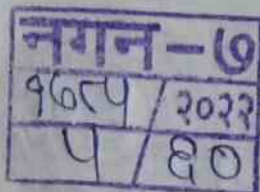 नगन - ७
१७८५ / २०२२
५ / ६०